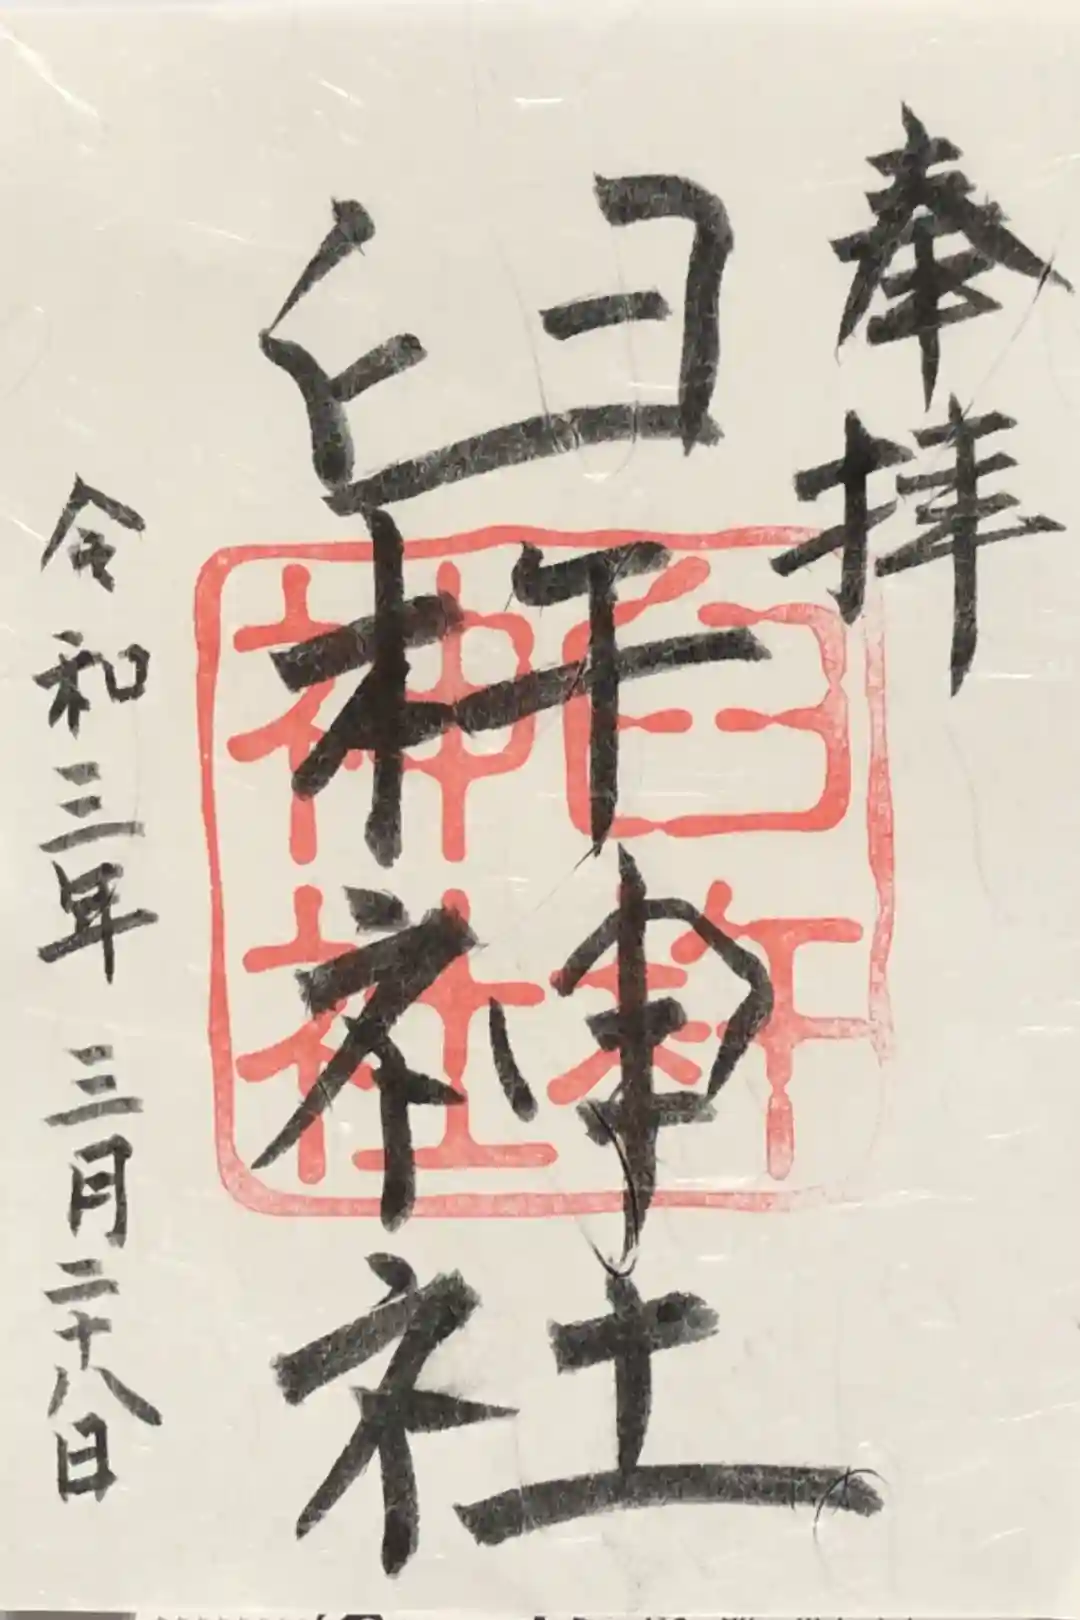 奉拝
臼杵神社
臼杵神社
令和三年三月二十八日